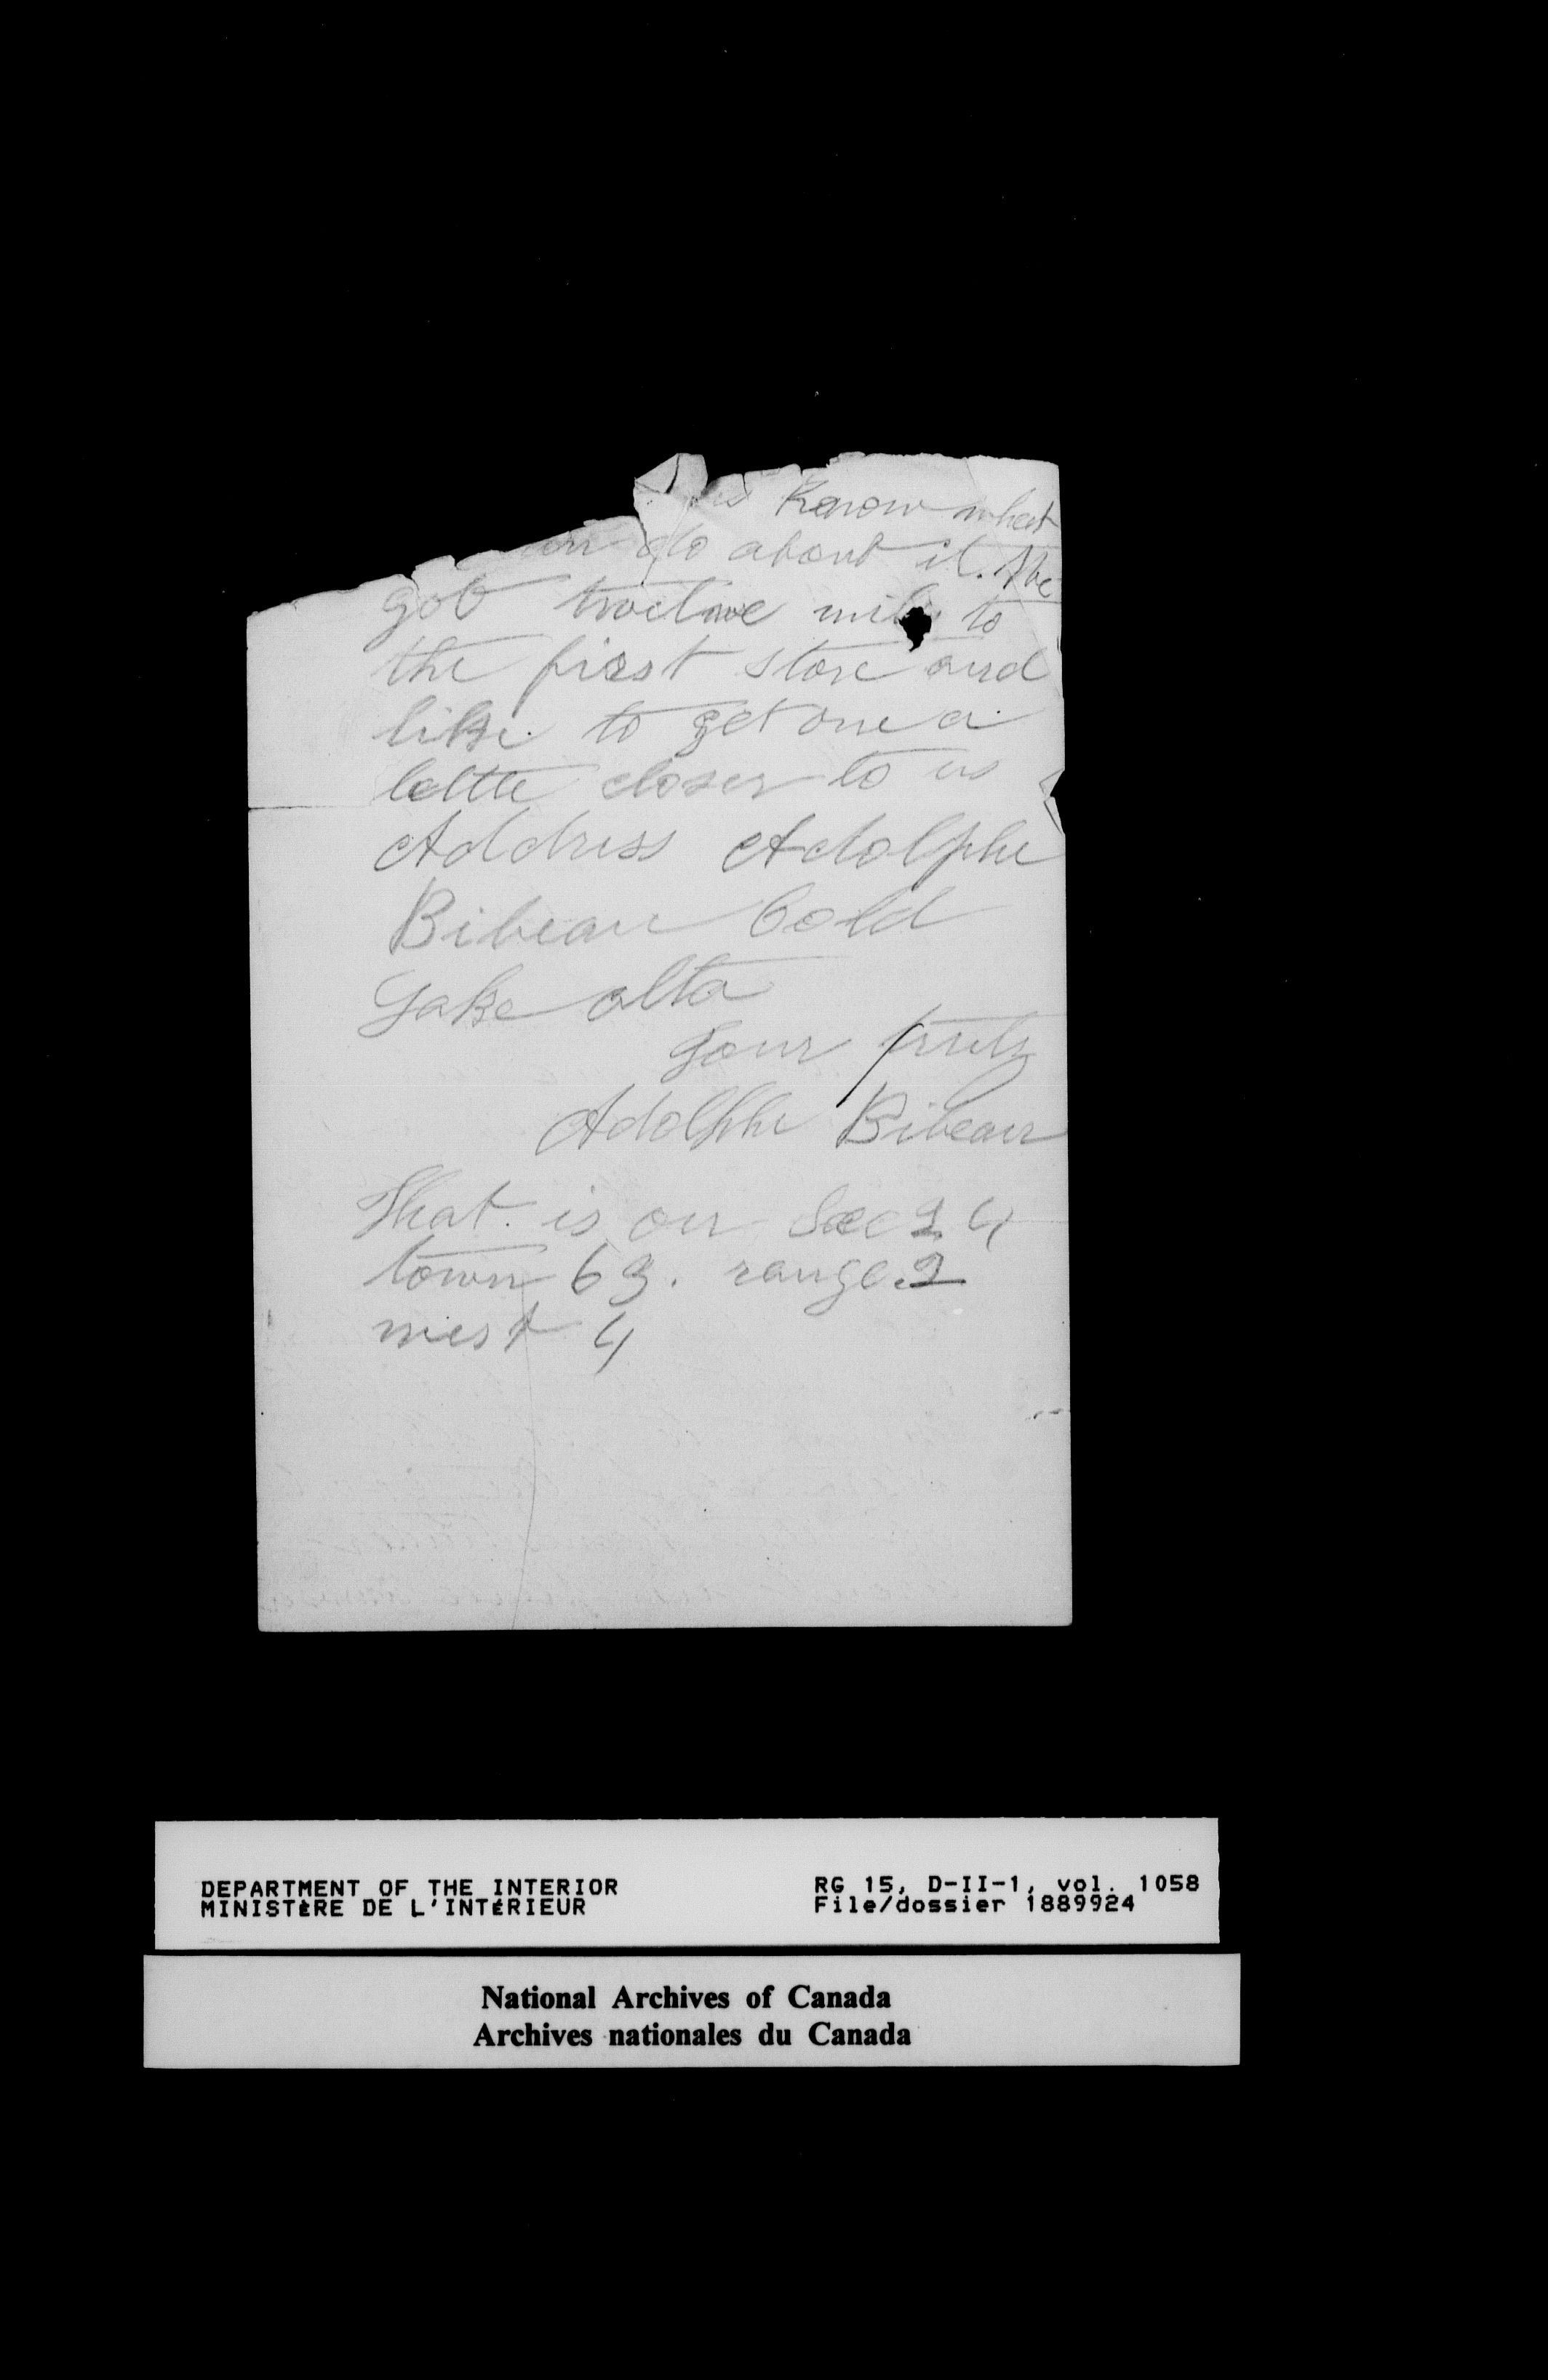 us Know what
do about it. We
got twelwe miles to
the first store and
like to get one a
lettle closer to us
Address Adolphe
Bibeau Cold
Lake alta
Your truly
Adolphe Bibeau
That is on Sec 24
town 63. range 2
west 4
DEPARTMENT OF THE INTERIOR
MINISTÈRE DE L'INTÉRIEUR
RG 15, D-II-1, vol. 1058
File/dossier 1889924
National Archives of Canada
Archives nationales du Canada